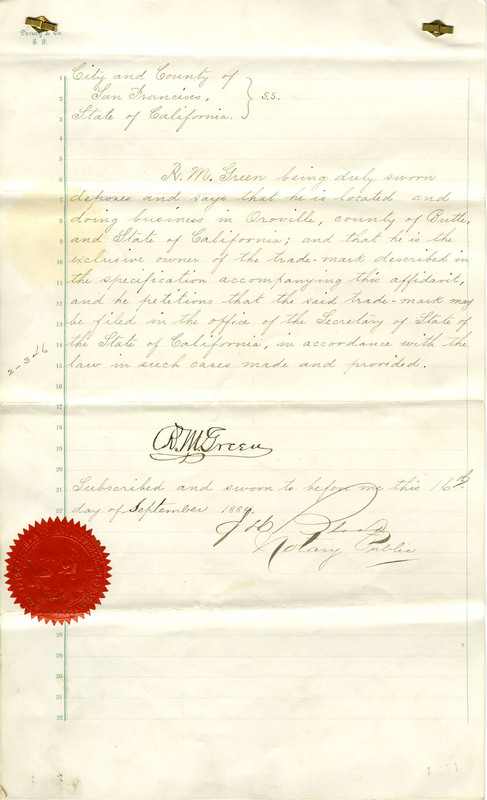 Dewey & Co.
S. F.
City and County of
San Francisco,
State of California.
} S.S.
R. M. Green being duly sworn
deposes and says that he is located and
doing business in Oroville, county of Butte,
and State of California; and that he is the
exclusive owner of the trade-mark described in
the specification accompanying this affidavit,
and he petitions that the said trade-mark may
be filed in the office of the Secretary of State of
the State of California, in accordance with the
law in such cases made and provided.
R. M. Green
Subscribed and sworn to before me this 16th
day of September 1884.
Notary Public
1
2
3
4
5
6
7
8
9
10
11
12
13
14
15
16
17
18
19
20
21
22
28
29
30
31
32